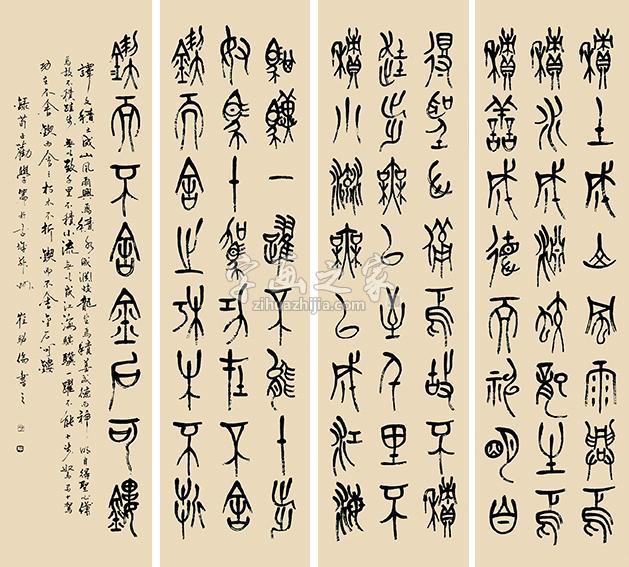 積土成山風雨興焉
積水成淵蛟龍生焉
積善成德而神明自
得聖心備焉故不積
跬步無以至千里不
積小流無以成江海
騏驥一躍不能十步
駑馬十駕功在不舍
鍥而舍之朽木不折
鍥而不舍金石可鏤
譯文積土成山風雨興焉積水成淵蛟龍生焉積善成德而神明自得聖心備
焉故不積跬步無以至千里不積小流無以成江海騏驥一躍不能十步駑馬十駕
功在不舍鍥而舍之朽木不折鍥而不舍金石可鏤
錄荀子勸學篇於書之
字画之家
zihuazhijia.com